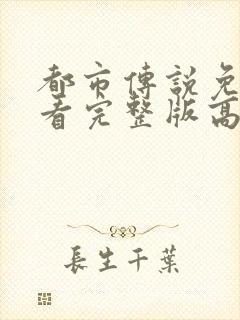 都市傳說免
看完整版高
長生千葉